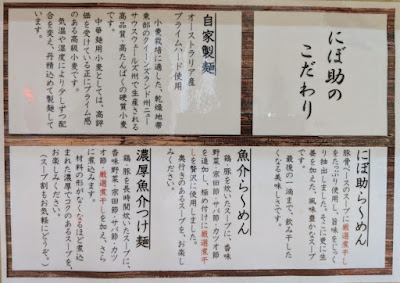 にぼ助の
こだわり
自家製麺
オーストラリア産
プライムハード使用
小麦栽培に適した、乾燥地帯
東部のクイーンズランド州ニュー
サウスウェールズ州で生産される
高品質、高たんぱくの硬質小麦
中華麺用小麦としては、高評
価を受けている正にプライム感
のある高級小麦です。
気温や湿度により少しずつ配
合を変え、丹精込めて製麺して
います。
にぼ助らーめん
豚骨ベースのスープに、厳選煮干し
をたっぷり使用し、旨味をじっく
り抽出しました。そこに更に生
姜を加えた、風味豊かなスープ
最後の一滴まで、飲み干した
くなる美味しさです。
魚介らーめん
鶏、豚を炊いたスープに、香味
野菜・宗田節・サバ節・カツオ節
を追加し、極め付けに厳選煮干
しを贅沢に使用しました。
奥行きのあるスープを、お楽し
みください。
濃厚魚介つけ麺
鶏、豚を長時間炊いたスープに、
香味野菜・宗田節・サバ節・カツ
オ節・厳選煮干しを加え、さら
に煮込みます。
材料の形がなくなるほど煮込
まれた濃厚でコクのあるスープを、
お楽しみください。
(スープ割もお気軽にどうぞ。)